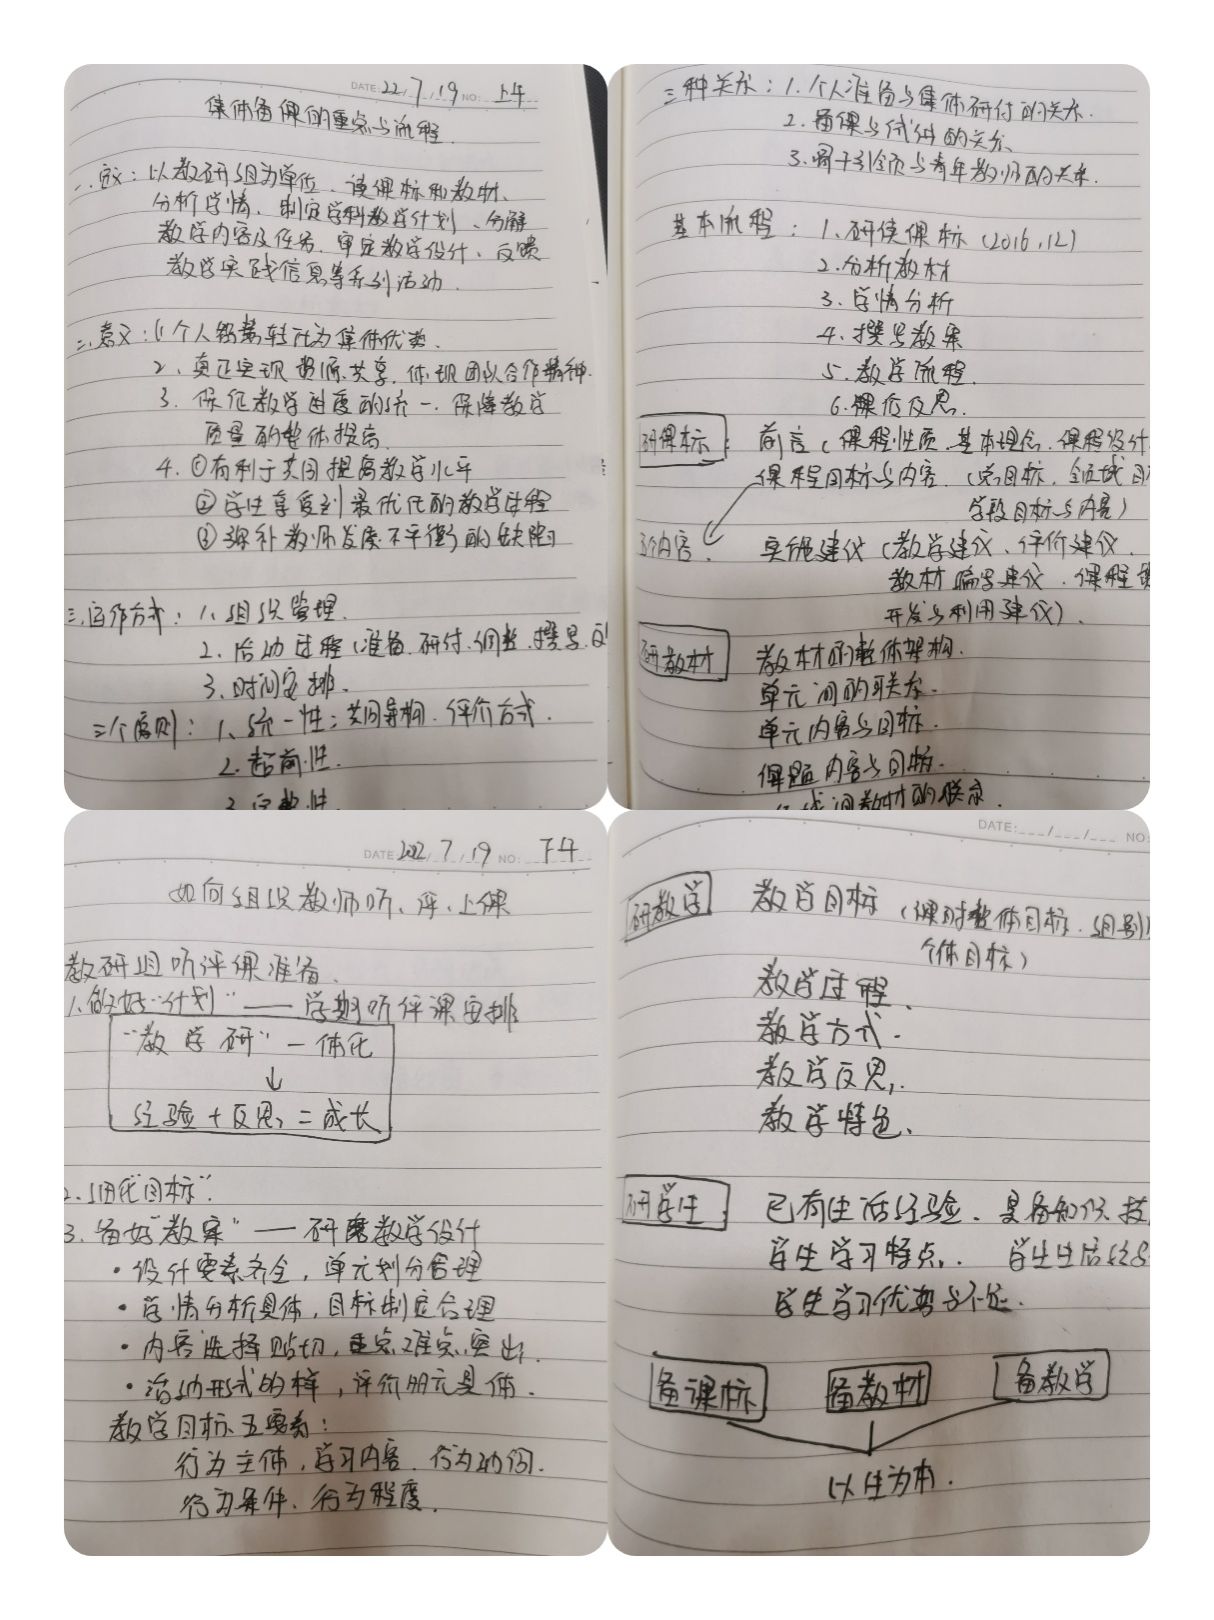 DATE: 22.7.19 NO: 上午
集体备课的重点与流程
一、定义：以教研组为单位、读课标和教材、
分析学情、制定学科教学计划、分解
教学内容及任务、审定教学设计、反馈
教学实践信息等系列活动.
二、意义：1、个人 转化为集体优势.
2、真正实现资源共享，体现团队合作精神.
3、保证教学进度的统一、保障教学
质量的整体提高
4. ①有利于共同提高教学水平
②学生享受到最优化的教学过程
③弥补教师发展不平衡的缺陷
三、运作方式：1、组织管理.
2、活动过程（准备、研讨、调整、撰写、反
3、时间安排.
三个原则：1、统一性：共同导构、评价方式.
2.超前性.
3.完整性.
三种关系：1.个人准备与集体研讨的关系.
2.备课与试讲的关系、
3.骨干引领与青年教师的关系.
基本流程：1、研读课标（2016.12）
2.分析教材
3.学情分析
4.撰写教案
5.教学流程.
6.课后反思.
研课标：前言（课程性质、基本理念、课程设计
课程目标与内容.（总目标、全区域目
学段目标与内容）
3个内容. 实施建议（教学建议、评价建议、
教材编写建议、课程资
开发与利用建议）.
研教材 教材的整体架构.
单元间的联系.
单元内容与目标.
课题内容与目标.
领域间教材的联系.
DATE: 2022/7/19 NO: 下午
如何组织教师听、评、上课
教研组听评课准备.
1.做好“计划”——学期听评课安排
“教学研”一体化
↓
经验+反思=成长
2.细化“目标”.
3.备好“教案”——研磨教学设计
·设计要素齐全，单元划分合理
·学情分析具体，目标制定合理
·内容选择贴切，重点难点突出.
·活动形式多样，评价明元具体.
教学目标五要素：
行为主体、学习内容、行为动词.
行为条件、行为程度.
DATE: ___/___/___ NO:
研教学 教学目标（课时整体目标、组别
个体目标）
教学过程.
教学方式.
教学反思.
教学特色、
研学生 已有生活经验、具备知识、技
学生学习特点、 学生生活经
学生学习优势与不足.
备课标 备教材 备教学
以生为本.